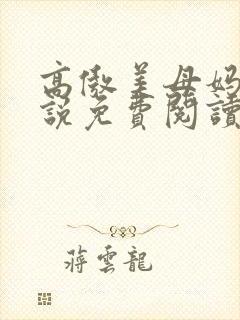 高傲美母妈
說免費閱讀
蔣雲龍